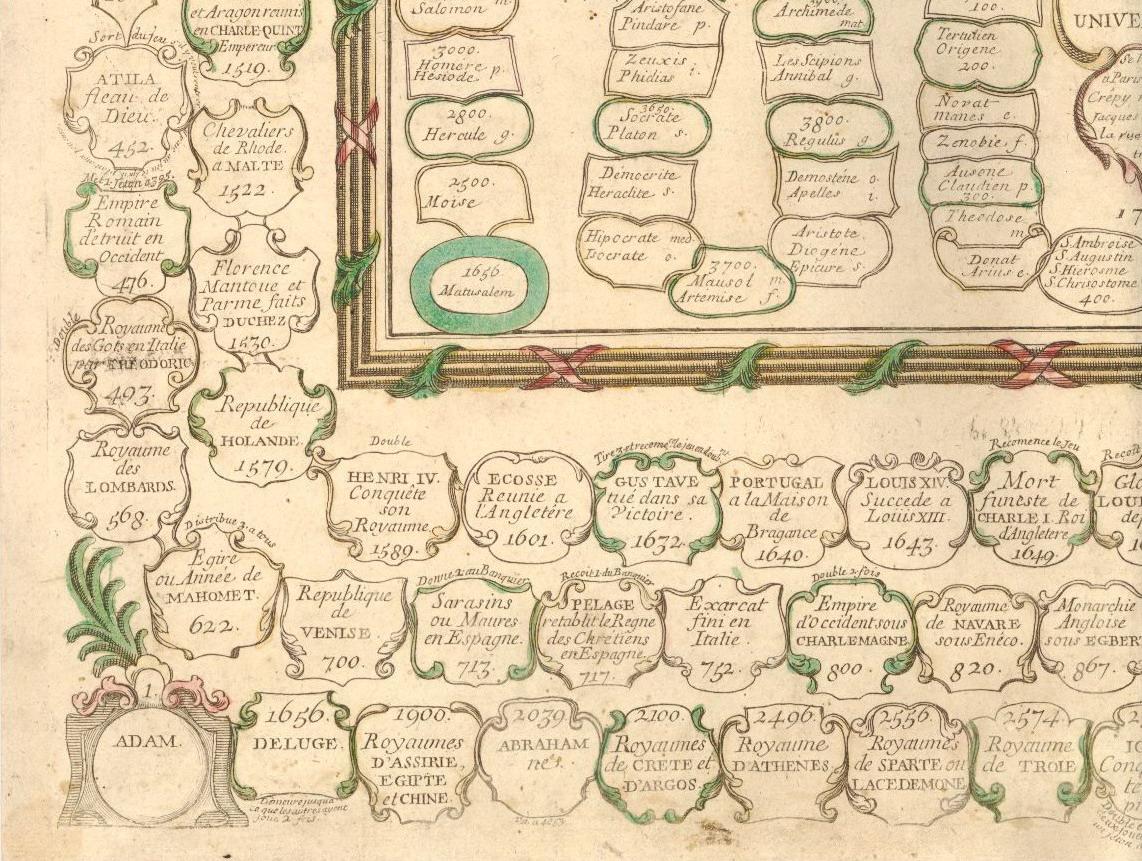 et Aragon reunis
en CHARLE QUINT
Empereur
1519.
Sort du jeu
ATILA
fleau de
Dieu.
452.
Chevaliers
de Rhode.
a MALTE
1522.
Empire
Romain
detruit en
Occident
476.
Florence
Mantoue et
Parme faits
DUCHEZ
1530.
Double
Royaume
des Gots en Italie
par THEODORIC
493.
Republique
de
HOLANDE.
1579.
Royaume
des
LOMBARDS.
568.
Salomon m.
3000.
Homere
Hesiode p.
2800.
Hercule g.
2500.
Moise
1656
Matusalem
Aristofane
Pindare p.
Zeuxis
Phidias i.
3650.
Socrate
Platon s.
Democrite
Heraclite s.
Hipocrate med.
Isocrate o.
3700.
Mausol m
Artemise f.
Archimede
mat
Les Scipions
Annibal g.
3800.
Regulus g.
Demostene o.
Apelles i.
Aristote
Diogene
Epicure s.
100.
Tertulien
Origene
200.
Novat
manes e.
Zenobie f.
Ausone
Claudien p.
300.
Theodose
m
Donat
Arius e.
S. Ambroise
S. Augustin
S. Hierosme
S. Chrisostome
400.
UNIVE
a Paris
Crepy
Jacques
la rue
17
Double
HENRI IV.
Conquête
son
Royaume.
1589.
ECOSSE
Reunie a
l'Angletére
1601.
GUSTAVE
tué dans sa
Victoire.
1632.
PORTUGAL
a la Maison
de
Bragance
1640.
LOUIS XIV.
Succede a
Louis XIII.
1643.
Recomence le Jeu
Mort
funeste de
CHARLE I. Roi
d'Angletere
1649.
Distribue 2. a tous
Egire
ou Année de
MAHOMET.
622.
Republique
de
VENISE.
700.
Donne 2. au Banquier
Sarasins
ou Maures
en Espagne.
713.
Recoit 1. du Banquier
PELAGE
retablit le Regne
des Chretiens
en Espagne.
717.
Exarcat
fini en
Italie.
752.
Double 2. fois
Empire
d'Occident sous
CHARLEMAGNE
800.
Royaume
de NAVARE
sous Eneco.
820.
Monarchie
Angloise
sous EGBER
867.
1.
ADAM.
1656.
DELUGE.
Demeure jusqua
ce que les autres ayent
joué 2. fois.
1900.
Royaumes
D'ASSIRIE,
EGIPTE
et CHINE.
2039.
ABRAHAM
né.
2100.
Royaumes
de CRETE et
D'ARGOS.
2496.
Royaume
D'ATHENES.
2556.
Royaumes
de SPARTE ou
LACEDEMONE
2574.
Royaume
de TROIE